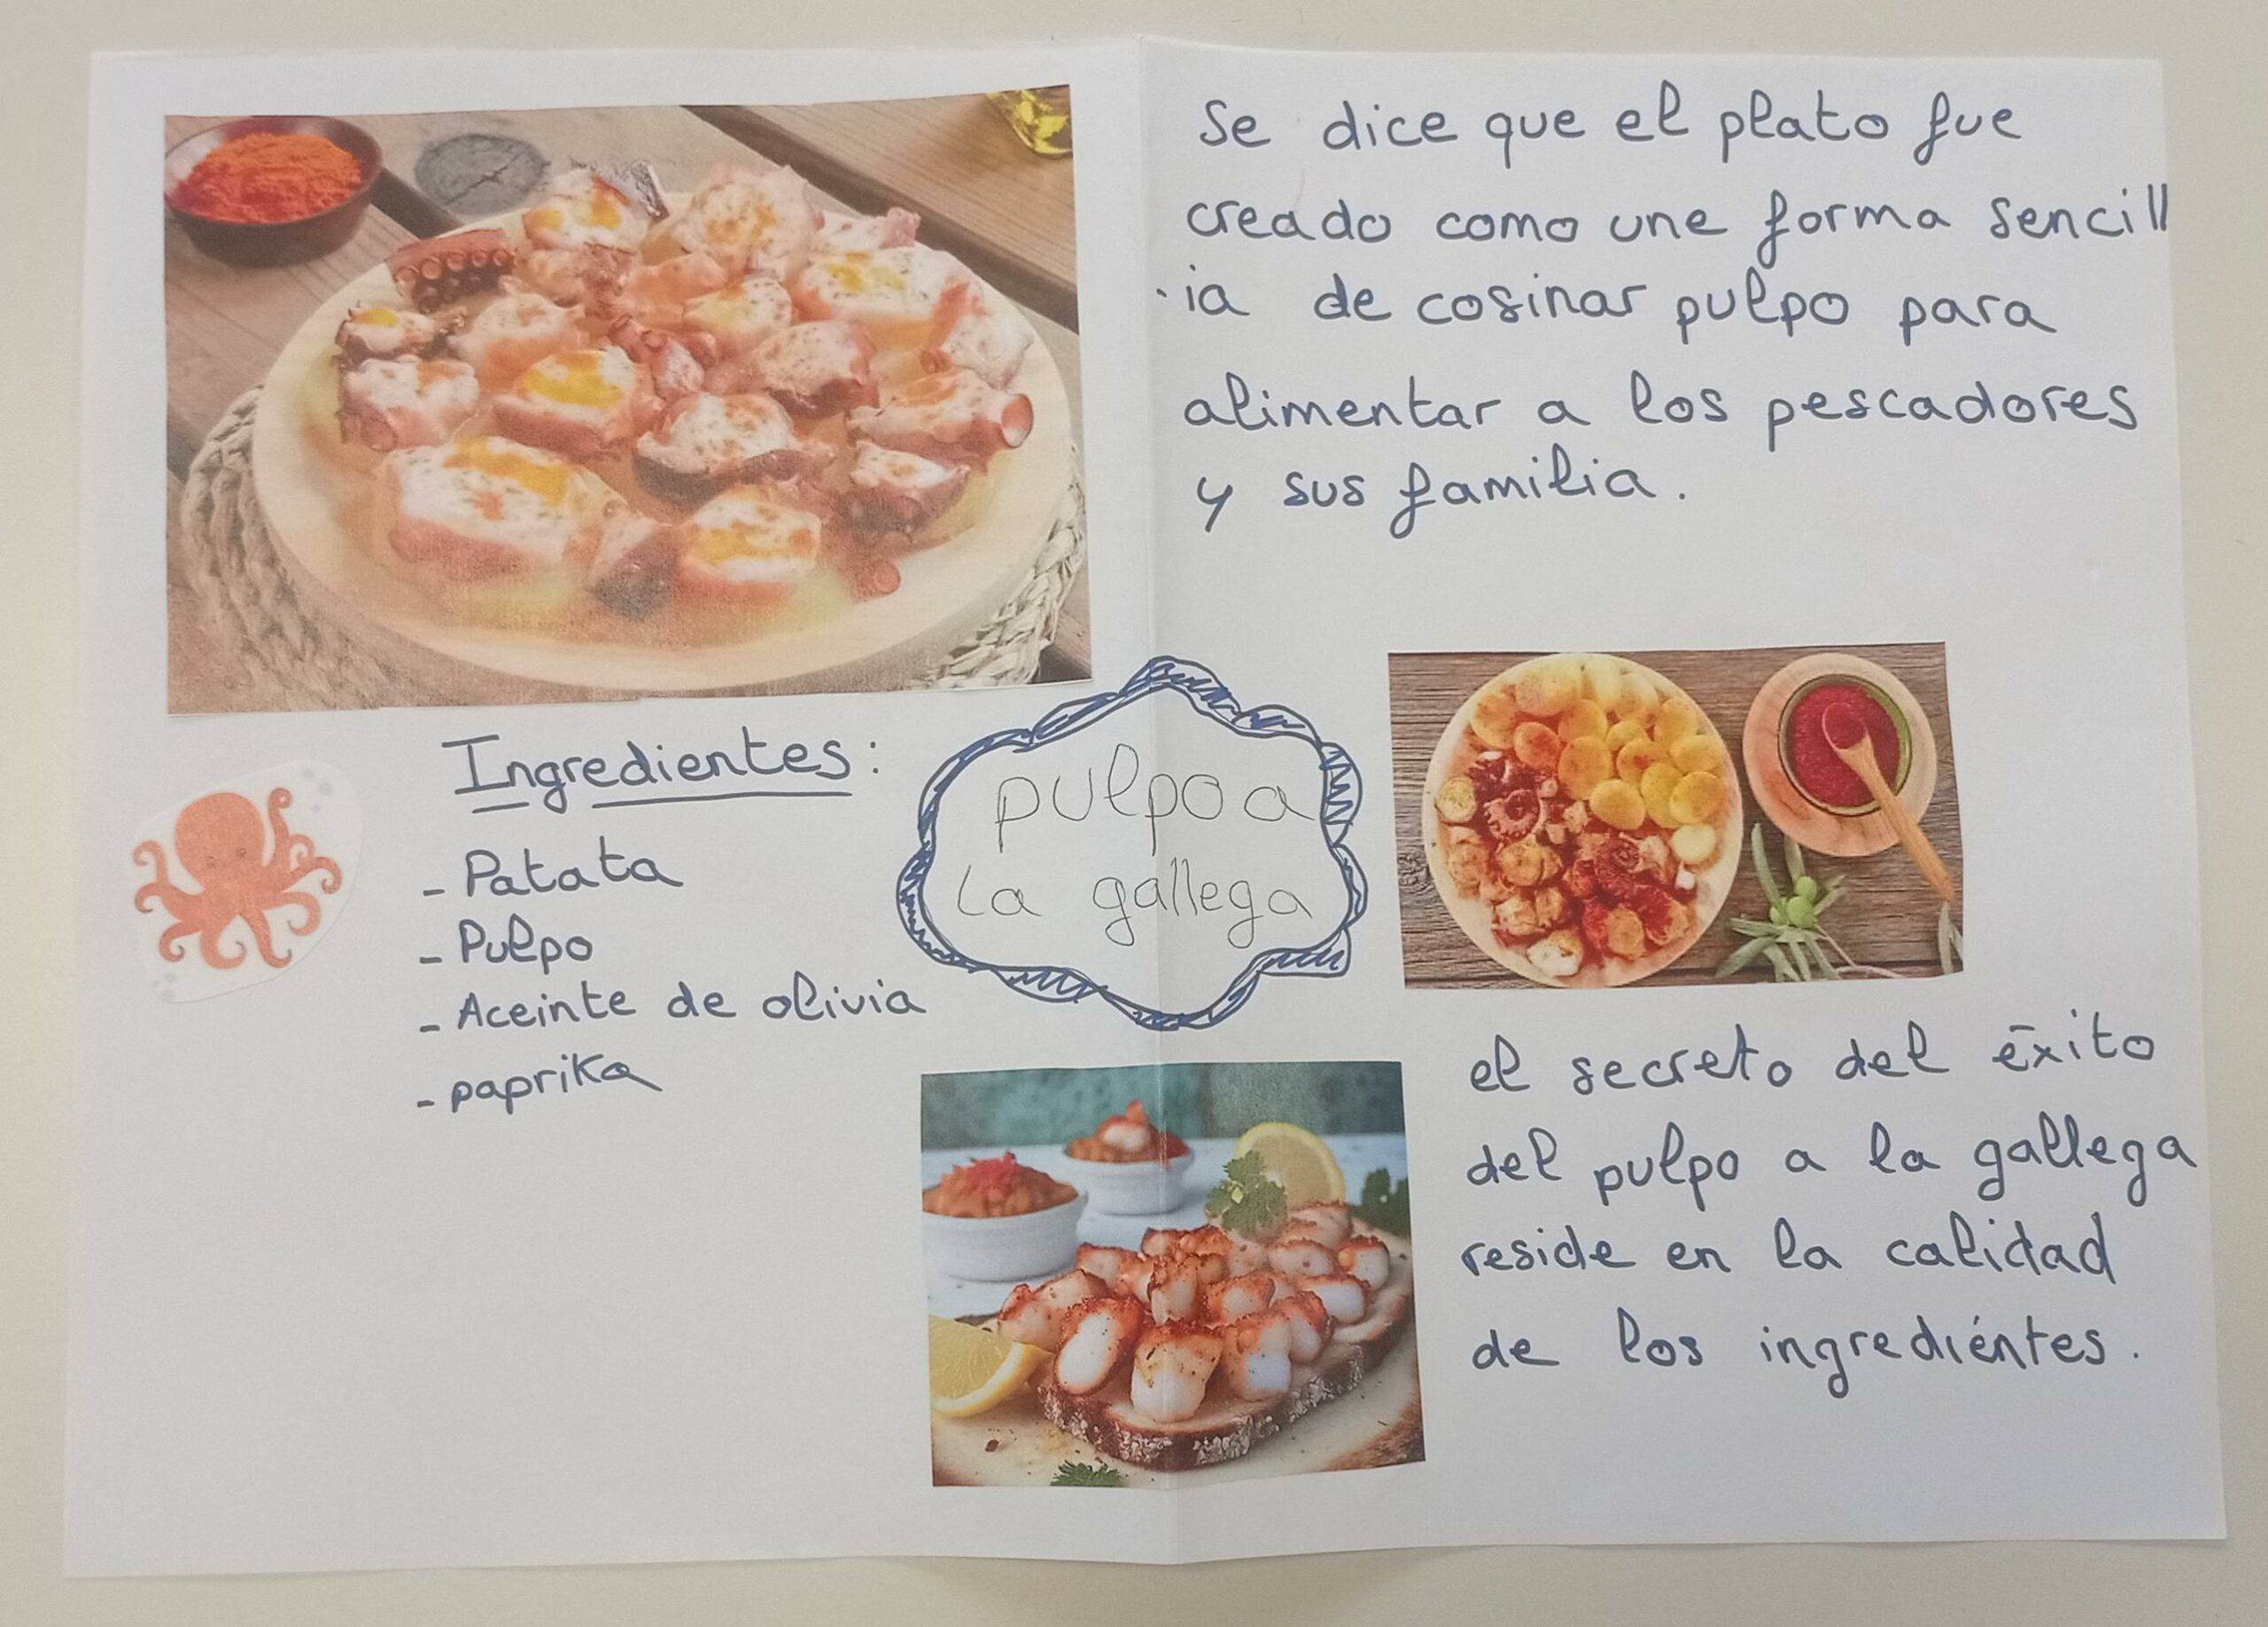 Se dice que el plato fue
creado como une forma sencill
ia de cosinar pulpo para
alimentar a los pescadores
y sus familia.
Ingredientes:
- Patata
- Pulpo
- Aceinte de olivia
- paprika
pulpo a
la gallega
el secreto del éxito
del pulpo a la gallega
reside en la calidad
de los ingrediéntes.